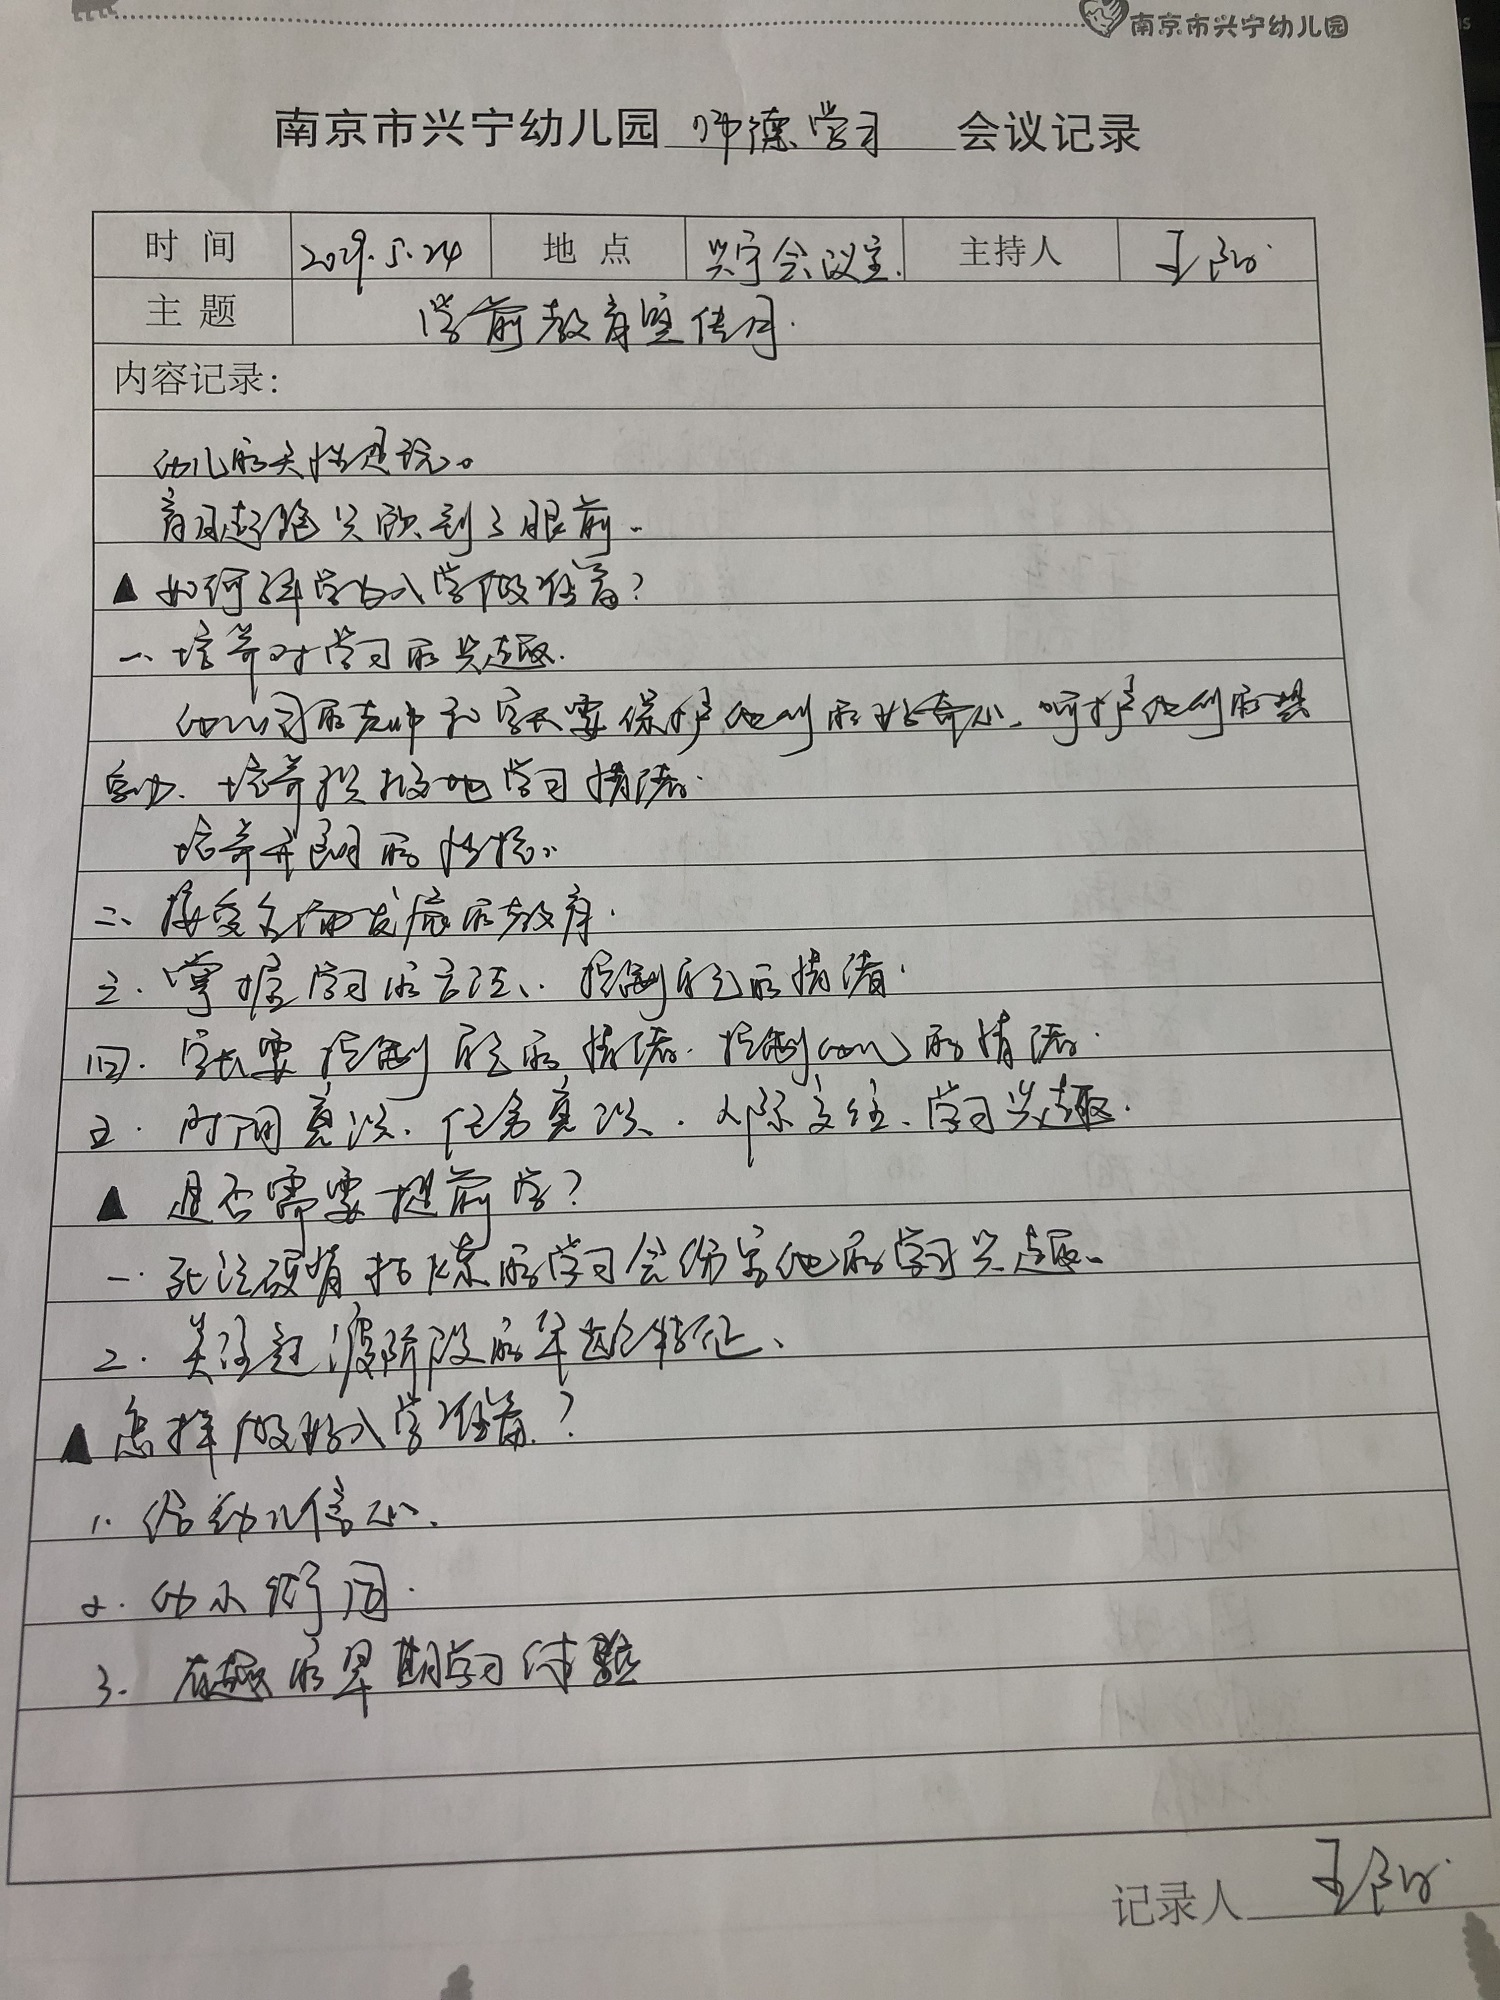 南京市兴宁幼儿园
南京市兴宁幼儿园 师德学习 会议记录
时间 地点 兴宁会议室. 主持人
主题 学前教育宣传月.
内容记录:
幼儿的天性是玩。
到了眼前.
▲ 如何科学为入学做准备?
一、培养对学习的兴趣.
幼儿园的老师和家长要保护他们的好奇心、呵护他们的
培养积极地学习情绪.
培养开朗的性格.
二、接受全面发展的教育.
三. 掌握学习的方法、控制自己的情绪.
四. 家长要控制自己的情绪. 控制幼儿的情绪.
五. 时间意识. 任务意识. 人际交往、学习兴趣.
▲ 是否需要提前学?
一. 死记硬背 的学习会伤害他的学习兴趣.
二. 关注过渡阶段的年龄特征、
▲ 怎样做好入学准备?
1. 给幼儿信心.
2. 幼小
3. 有趣的早期学习体验
记录人